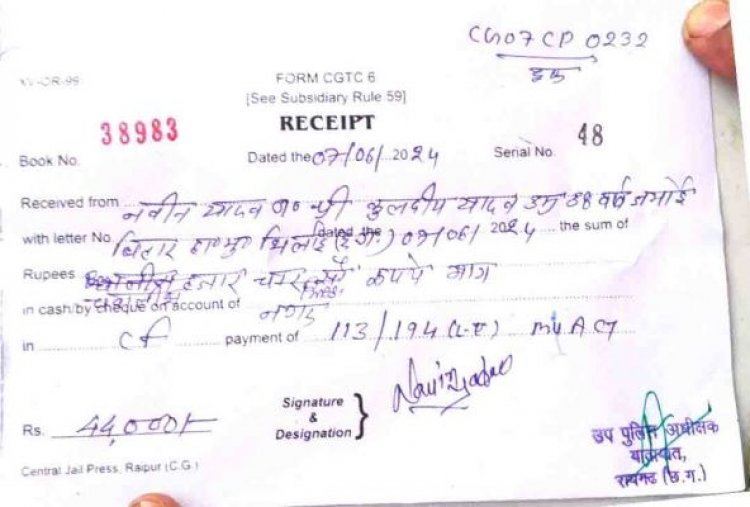 CG07 CP 0232
FORM CGTC 6
[See Subsidiary Rule 59]
RECEIPT
Book No. 38983 Dated the 07/06/2024 Serial No. 48
Received from नवीन यादव श्री कुलदीप यादव उम्र 38 वर्ष
with letter No. भिलाई dated the 07/06/ 2024 the sum of
Rupees हजार रूपये मात्र
in cash/by cheque on account of नगद
in payment of 113/194 MV ACT
Signature
&
Designation
Navin Yadav
Rs. 44,000/-
Central Jail Press, Raipur (C.G.)
उप पुलिस अधीक्षक
यातायात,
रायगढ (छ.ग.)